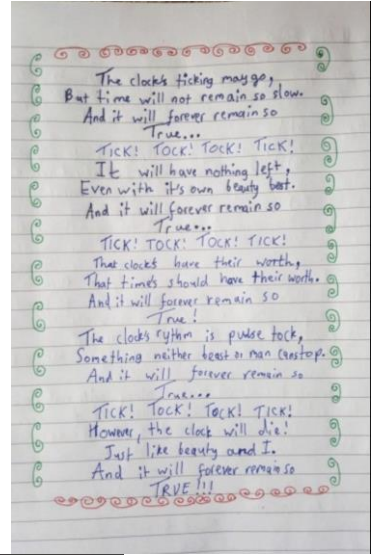 The clocks ticking may go,
But time will not remain so slow.
And it will forever remain so
True...
TICK! TOCK! TOCK! TICK!
It will have nothing left,
Even with it's own beauty best.
And it will forever remain so
True...
TICK! TOCK! TOCK! TICK!
That clocks have their worth,
That times should have their worth.
And it will forever remain so
True!
The clocks rythm is pulse tock,
Something neither beast or man can stop.
And it will forever remain so
True...
TICK! TOCK! TOCK! TICK!
However, the clock will die!
Just like beauty and I.
And it will forever remain so
TRUE!!!